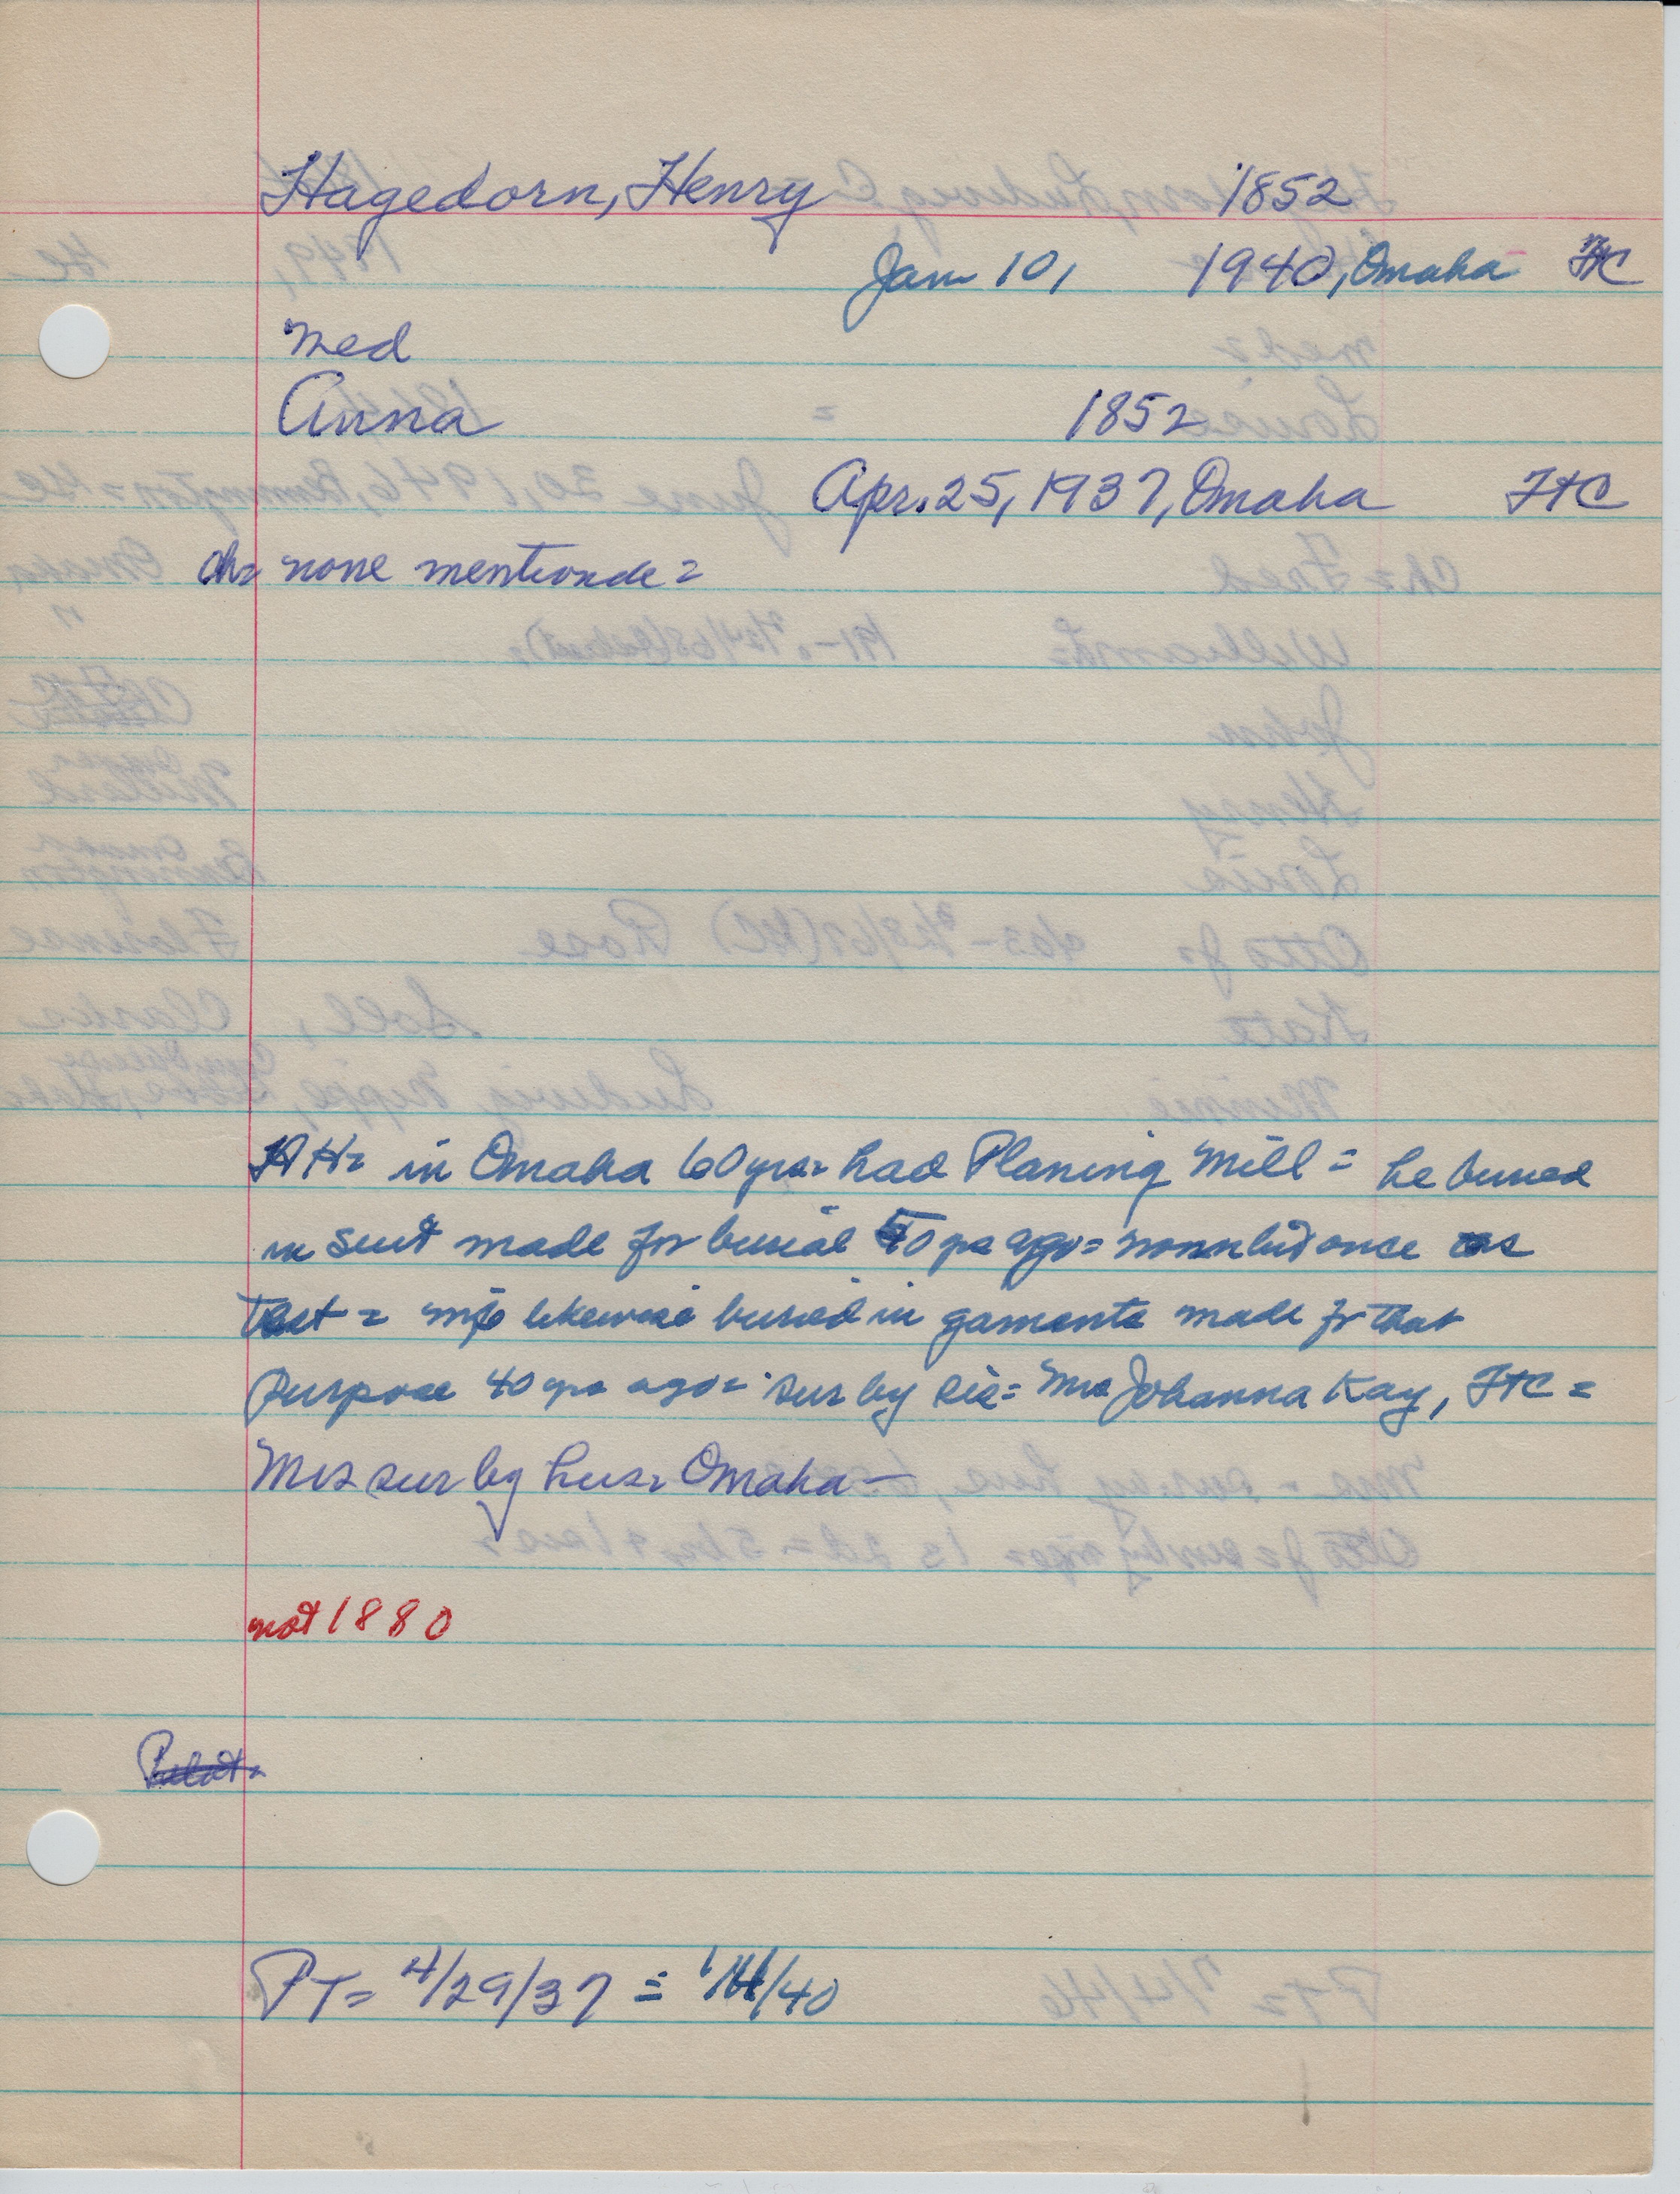 Hagedorn, Henry 1852
Jan 10, 1940, Omaha FtC
Med
Anna = 1852
Apr. 25, 1937, Omaha FtC
ch= none mentionde =
HH= in Omaha 60 yrs= had Planing Mill = he buried
in suit made for burial 40 yrs ago = worn but once as
test = wife likewise buried in gaments made for that
purpose 40 yrs ago = sur by sis= Mrs Johanna Kay, FtC =
Mrs sur by hus= Omaha —
not 1880
PT= 4/29/37 = 1/11/40